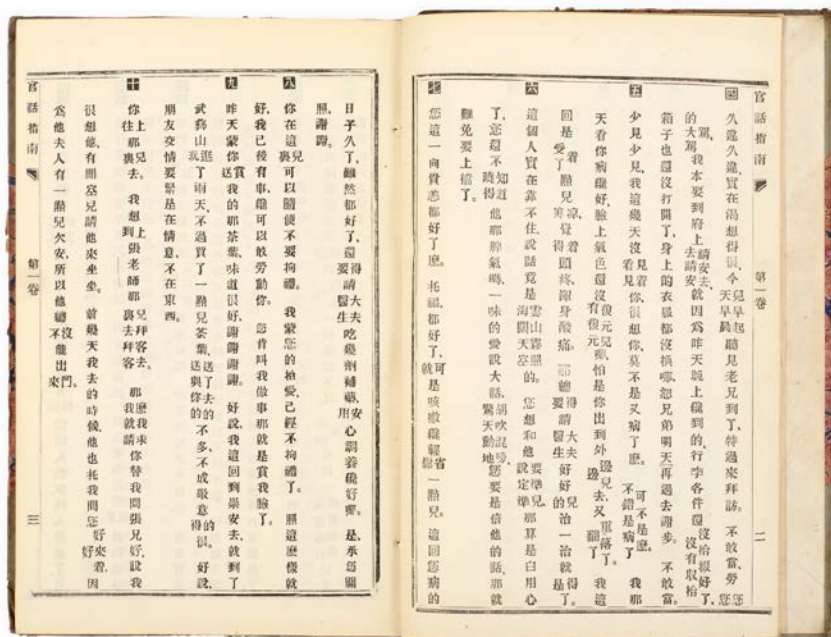 官話指南 第一卷 二
四 久違久違、實在渴想得很、今兒早起 天早晨 聽見老兄到了、特過來拜訪。 不敢當、勞您 您
駕、 的大駕 我本要到府上請安去、 去請安 就因爲昨天晚上纔到的、行李各件還沒拾掇好了、 沒有收拾
箱子也還沒打開了、身上的衣服都沒換哪、恕兄弟明天再過去謝步。 不敢當。
五 少見少見、我這幾天沒見着 看見 你、很想你、莫不是又病了麽。 可不是麽。 不錯是病了 我那
天看你病纔好、臉上氣色還沒有復元兒 復元 哪、怕是你出到外邊兒去、又重落了。 邊去又翻了 我這
回是着 受了點兒涼、 寒 覺着 得 頭疼、渾身酸痛。 那總得大夫 要請醫生 好好兒 好的 治一治就得了。 是了
六 這個人實在靠不住、說話竟是雲山霧照。 海闊天空的。 您想和他要準兒 說定準 那算是白用心
了、您還不知道 曉得 他那脾氣嗎、一味的愛說大話、胡吹混嗙、 驚天動地 您要是信他的話、那就
難免要上檔了。
七 您這一向貴恙都好了麽。 托福、都好了、可 就 是咳嗽纔輕省 鬆 一點兒。 這回您病的
日子久了、雖然都好了、還得 要 請大夫 醫生 吃幾劑補藥、安 用 心調養纔好哪。 是、承您關
照、謝謝。
八 你在這兒 裏 可以隨便、不要拘禮。 我蒙您的抬愛、已經不拘禮了。 照這麽樣就
好、我已後有事、纔可以敢勞動你。 您肯叫我做事、那就是賞我臉了。
九 昨天蒙你賞 送 我的那茶葉、味道很好、謝謝謝謝。 好說、我這回到崇安去、就到了
武彛山逛 玩 了兩天、不過買了一點兒茶葉、送了去的 送與你的 不多、不成敬意的 得 很。 好說、
朋友交情要緊是在情意、不在東西。
十 你上 往 那兒 裏 去。 我想上 到 張老師那兒 裏 拜客去。 去拜客 那麽我求 我就請 你替我問張兄好、說我
很想他、有閒空兒請他來坐坐。 前幾天我去的時候、他也托我問您好來着、 好 因
爲他夫人有一點兒欠安、所以他總沒 不能 出門。 出來
官話指南 第一卷 三